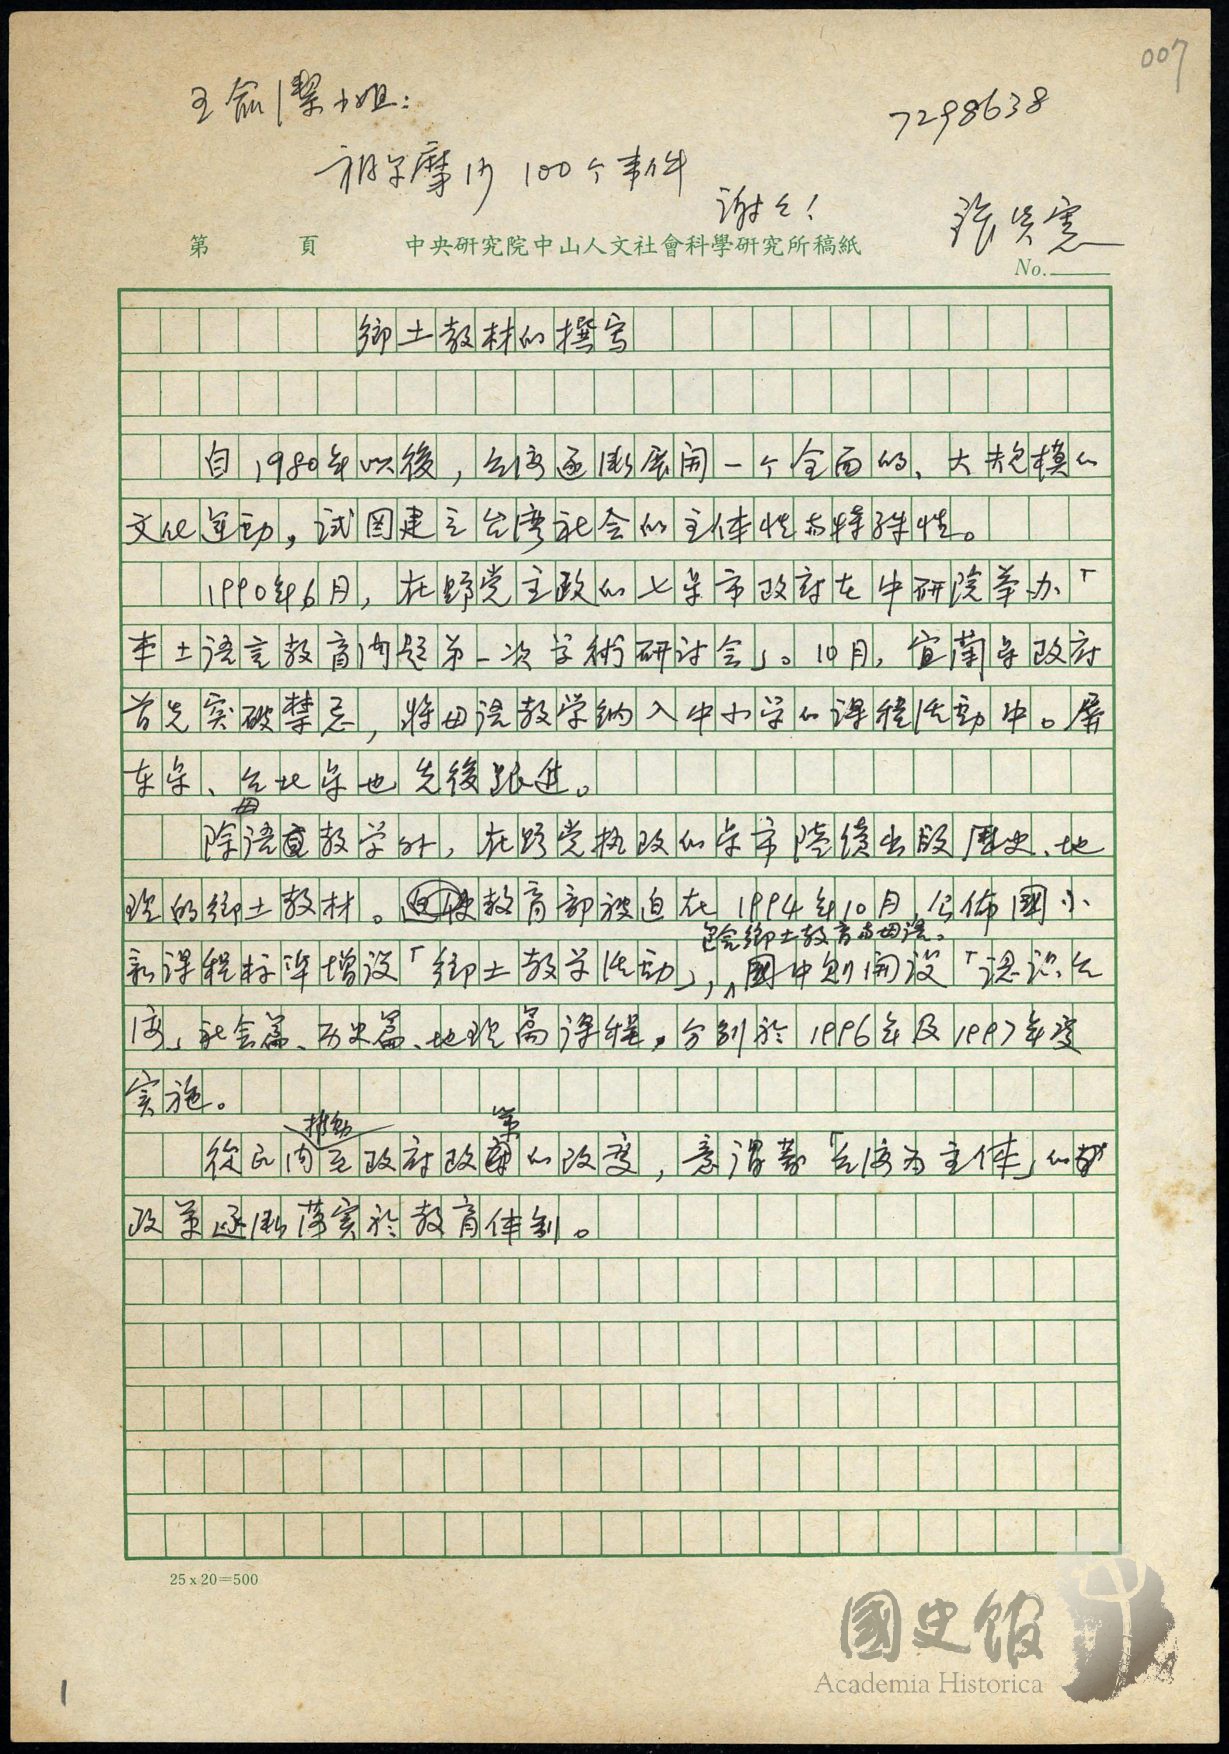 007
王俞潔小姐:
7298638
福尔摩沙 100个事件
謝々!
張炎憲
第　　頁　　中央研究院中山人文社會科學研究所稿紙
No.
鄉土教材的撰写
自1980年以後,台湾逐漸展開一个全面的、大規模的
文化運動,試图建立台湾社会的主体性与特殊性。
1990年6月,在野党主政的七县市政府在中研院举办「
本土语言教育问題第一次学術研讨会」。10月,宜蘭县政府
首先突破禁忌,将母语教学纳入中小学的课程活動中。屏
东县、台北县也先後跟進。
除母語教学外,在野党执政的县市陸續出版歷史、地
理的鄉土教材。迫使教育部被迫在1994年10月,公佈國小
包含鄉土教育与母語。
新课程标準增設「鄉土教学活動」,國中则開設「認识台
湾」社会篇、历史篇、地理篇课程,分别於1996年及1997年度
实施。
推動
從民间至政府政策的改变,意謂著「台湾为主体」的
政策逐漸落实於教育体制。
25 x 20=500
1
國史館
Academia Historica